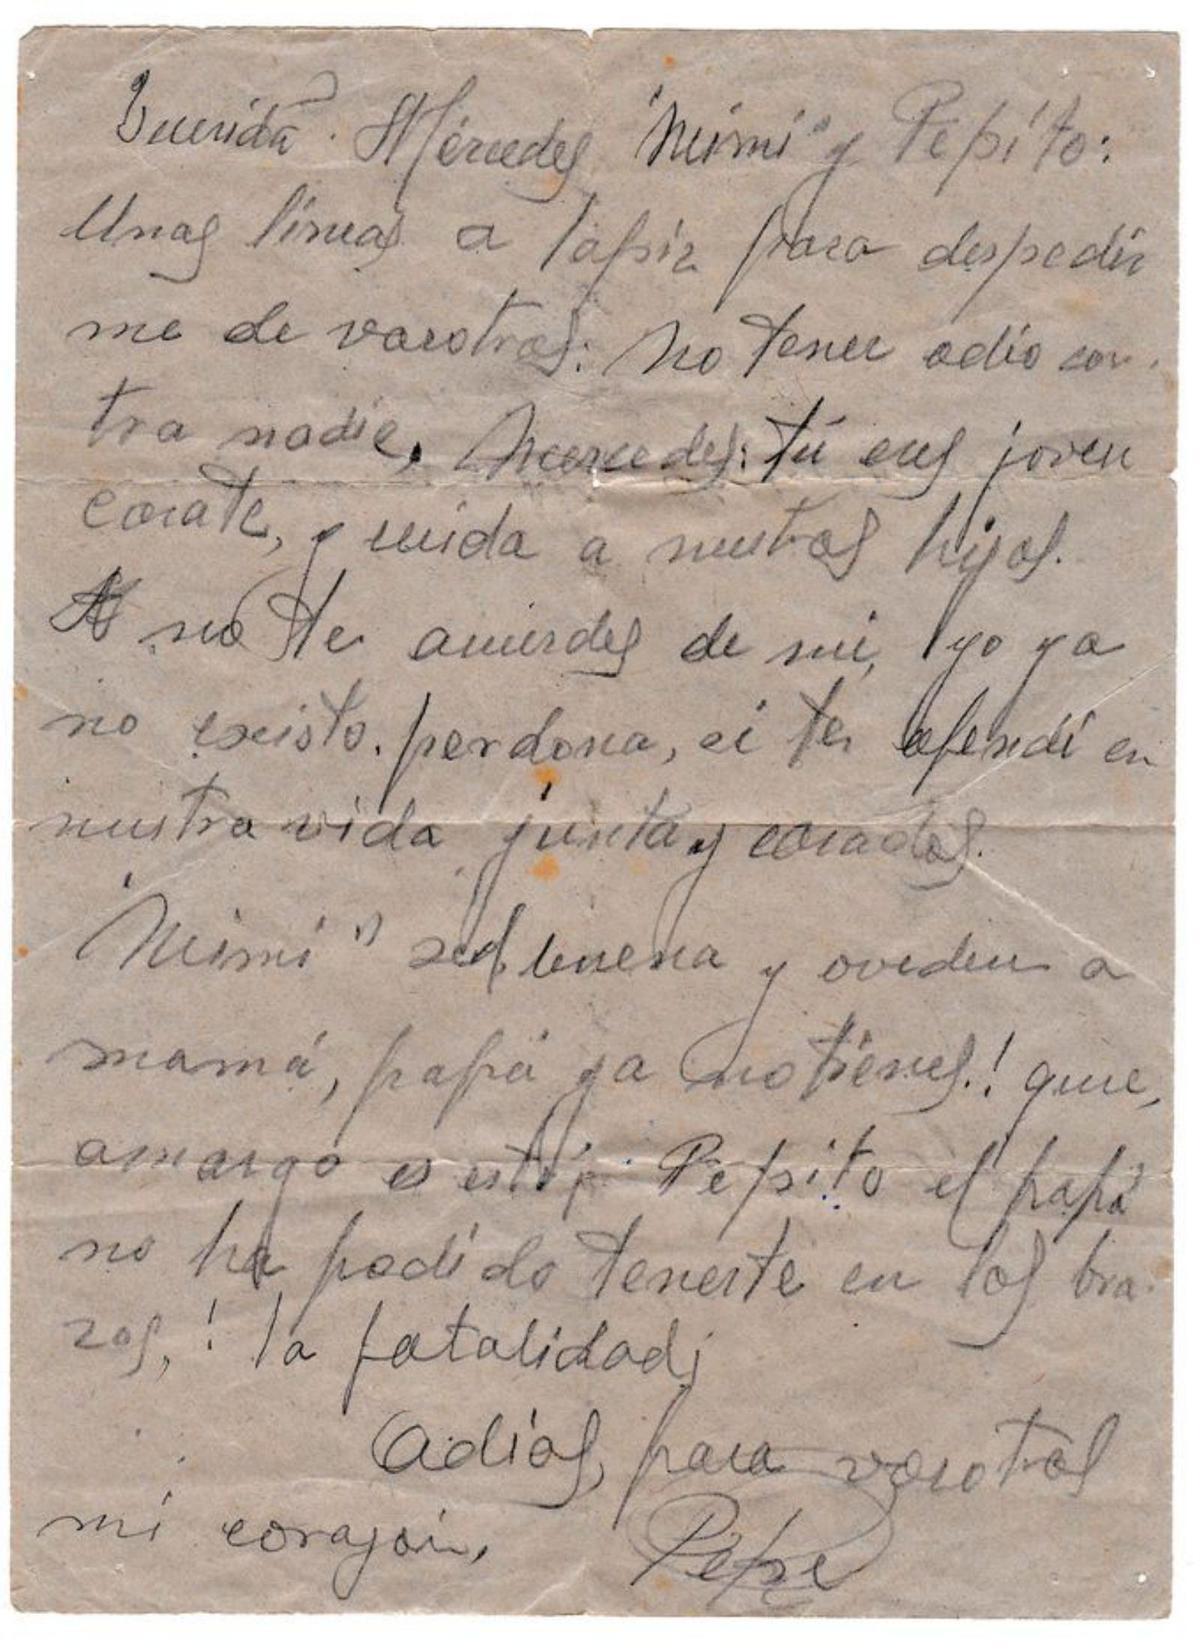 Querida Mércedes "Mimi" y Pepito:
Unas líneas a lapiz para despedir
me de vosotros: No tener odio con-
tra nadie, Mercedes: tú eres joven
casate, y cuida a nustros hijos.
no te acuerdes de mi, yo ya
no existo. perdona, si te ofendí en
nustra vida junta y casados.
"Mimi" sed buena y ovedece a
mamá, papá ya no tienes.! que,
amargo es esto¡ Pepito el papá
no ha podido tenerte en los bra-
zos, ! la fatalidad¡
Adiós, para vosotros
mi corazón,
Pepe